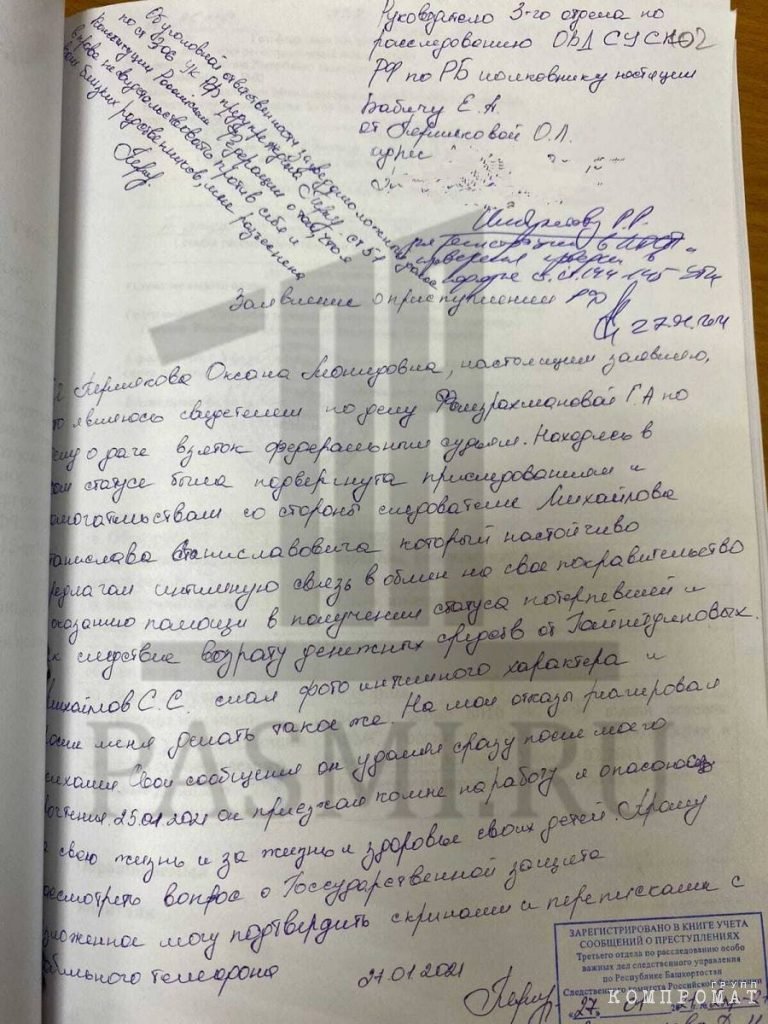 Руководителю 3-го отдела по
расследованию ОВД СУ СК
РФ по РБ полковнику юстиции
Бабичу Е. А.
от Пермяковой О.Л.
адрес
Об уголовной ответственности за заведомо ложный донос
по ст 306 УК РФ предупреждена. Перм. ст 51
Конституции Российской Федерации о том, что я
вправе не свидетельствовать против себя и
своих близких родственников, мне разъяснена
Перм
в порядке ст. ст. 144-145 УПК
РФ
Заявление о преступлении
Пермякова Оксана Леонидовна, настоящим заявляю,
являюсь свидетелем по делу Г.А по
о даче взяток федеральным судьям. Находясь в
статусе была подвергнута приследованиям и
со стороны следователя Михайлова
Станиславовича который настойчиво
интимную связь в обмен на свое покравительство
помощи в получении статуса потерпевшей и
следствие возрату денежных средств от Гайнетдиновых.
С.С. слал фото интимного характера и
меня делать такое же. На мои отказы реагировал
Свои сообщения он удалял сразу после моего
25.01.2021 он приезжал ко мне на работу я опасаюсь
свою жизнь и за жизнь и здоровье своих детей. Прошу
вопрос о Государственной защите
могу подтвердить скринами и переписками с
телефона 27.01.2021
Перм
ЗАРЕГИСТРИРОВАНО В КНИГЕ УЧЕТА
СООБЩЕНИЙ О ПРЕСТУПЛЕНИЯХ
Третьего отдела по расследованию особо
важных дел следственного управления
по Республике Башкортостан
Следственного комитета Российской
«27» 01
PASMI.RU
ГРУПП
КОМПРОМАТ